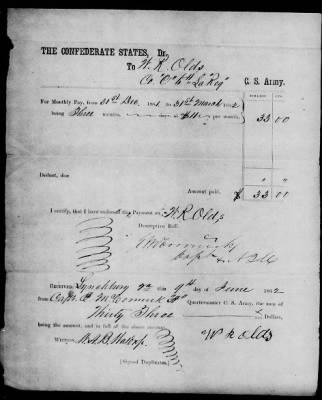 THE CONFEDERATE STATES, Dr.
To W. R. Olds
Co "C" 6th La Reg"
C. S. Army.
DOLLARS. CENTS.
For Monthly Pay, from 31st Dec. 1861 to 31st March 1862
being Three months, days @ $11 per month, 33 00
Deduct, due " "
Amount paid, $ 33 00
I certify, that I have endorsed this Payment on W. R. Olds
Descriptive Roll.
RECEIVED, Lynchburg Va this 9th day of June 1862
from Capt. McCormick
Quartermaster C. S. Army, the sum of
Thirty Three Dollars,
being the amount, and in full of the above account.
W R Olds
WITNESS,
[Signed Duplicates.]